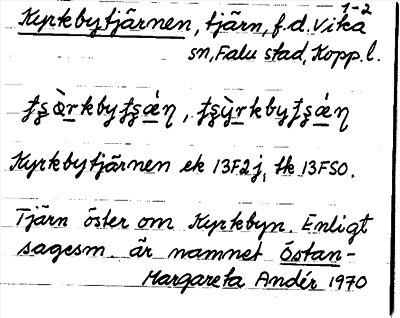 1-2
Kyrkbytjärnen, tjärn, f.d. Vika
sn, Falu stad, Kopp. l.
Kyrkbytjärnen ek 13F2j, tk 13FSO.
Tjärn öster om Kyrkbyn. Enligt
sagesm. är namnet östan-
Margareta Andér 1970